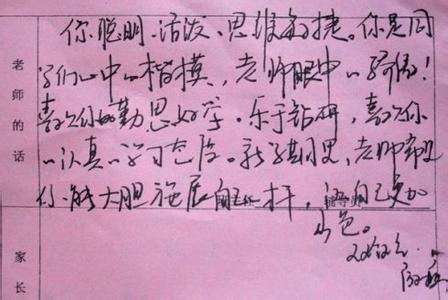 你聪明、活泼、思维敏捷。你是同
学们心中的楷模，老师眼中的骄傲！
喜欢你的勤思好学、乐于钻研，喜欢你
的认真的学习态度。新学期里，老师希望
你能大胆施展自己的才干，让自己更加
出色。
老师的话
家长